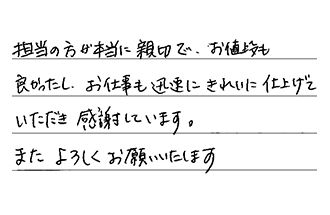 担当の方が本当に親切で、お値段も
良かったし、お仕事も迅速にきれいに仕上げて
いただき感謝しています。
またよろしくお願いいたします